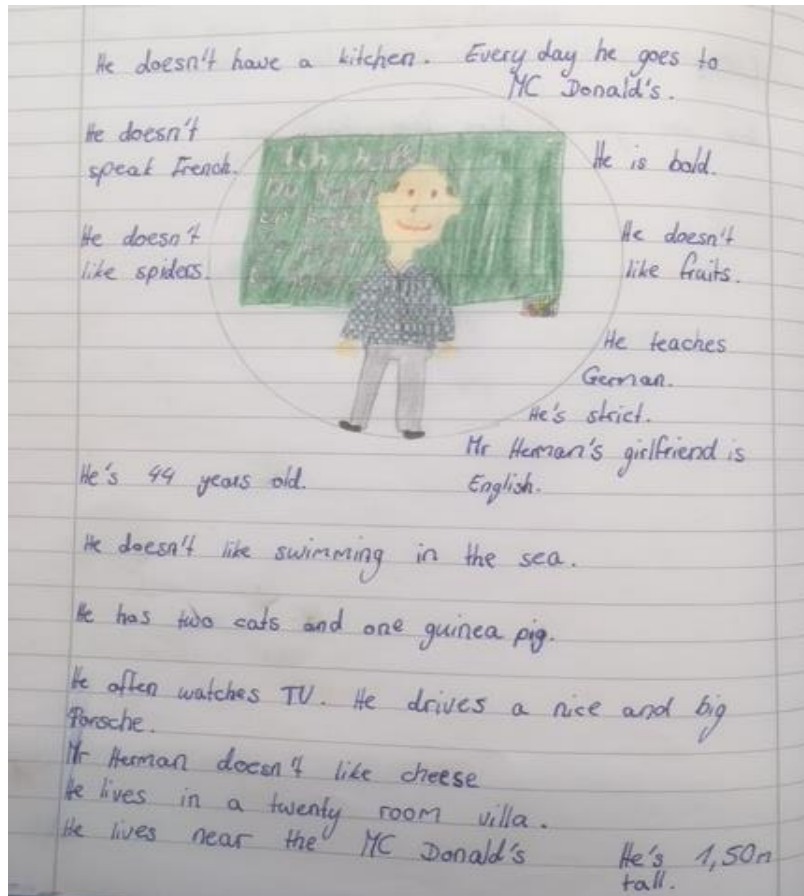 He doesn't have a kitchen. Every day he goes to
MC Donald's.
He doesn't
speak French.
He is bald.
He doesn't
like spiders.
He doesn't
like fruits.
Ich
He teaches
German.
He's strict.
Mr Herman's girlfriend is
English.
He's 44 years old.
He doesn't like swimming in the sea.
He has two cats and one guinea pig.
He often watches TV. He drives a nice and big
Porsche.
Mr Herman doesn't like cheese
He lives in a twenty room villa.
He lives near the MC Donald's
He's 1,50m
tall.